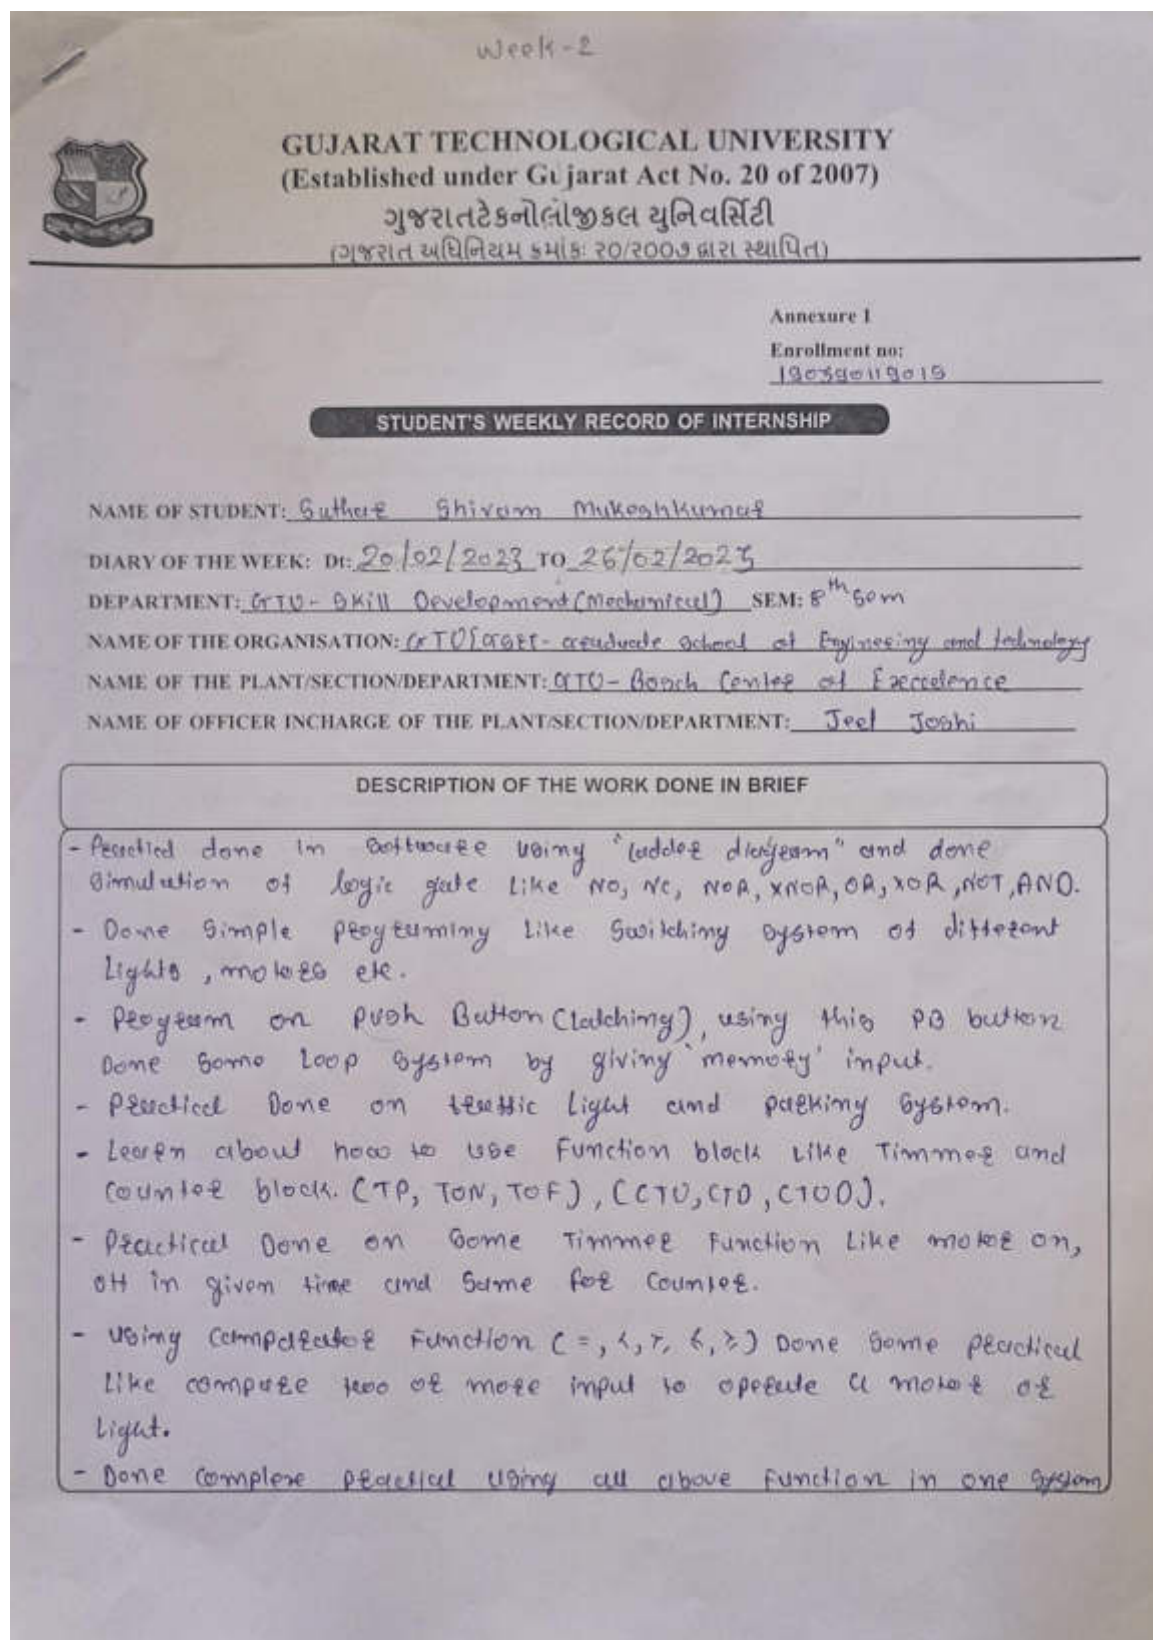 Week-2
GUJARAT TECHNOLOGICAL UNIVERSITY
(Established under Gujarat Act No. 20 of 2007)
ગુજરાતટેકનોલોજીકલ યુનિવર્સિટી
(ગુજરાત અધિનિયમ ક્રમાંકઃ ૨૦/૨૦૦૭ દ્વારા સ્થાપિત)
Annexure 1
Enrollment no:
190390119015
STUDENT'S WEEKLY RECORD OF INTERNSHIP
NAME OF STUDENT: Suthar Shivam Mukeshkumar
DIARY OF THE WEEK: Dt: 20/02/2023 TO 26/02/2023
DEPARTMENT: GTU - Skill Development (Mechanical) SEM: 8th sem
NAME OF THE ORGANISATION: GTU - Graduate School of Engineering and technology
NAME OF THE PLANT/SECTION/DEPARTMENT: GTU - Bosch Center of Execcelence
NAME OF OFFICER INCHARGE OF THE PLANT/SECTION/DEPARTMENT: Jeel Joshi
DESCRIPTION OF THE WORK DONE IN BRIEF
- Practicl done in Software using "ladder diagram" and done
Simulation of logic gate like NO, NC, NOR, XNOR, OR, XOR, NOT, AND.
- Done Simple programing like Switching system of different
Lights, motors etc.
- Program on Push Button (latching), using this PB button
Done some Loop system by giving 'memory' input.
- Practical Done on traffic light and parking system.
- Learn about how to use Function block like Timmer and
Counter block. (TP, TON, TOF), (CTU, CTD, CTUD).
- Practical Done on some Timmer Function Like motor on,
off in given time and same for counter.
- using comparator Function (=, <, >, ≤, ≥) Done some practical
Like compare two or more input to operate a motor or
Light.
- Done complete practical using all above Function in one system